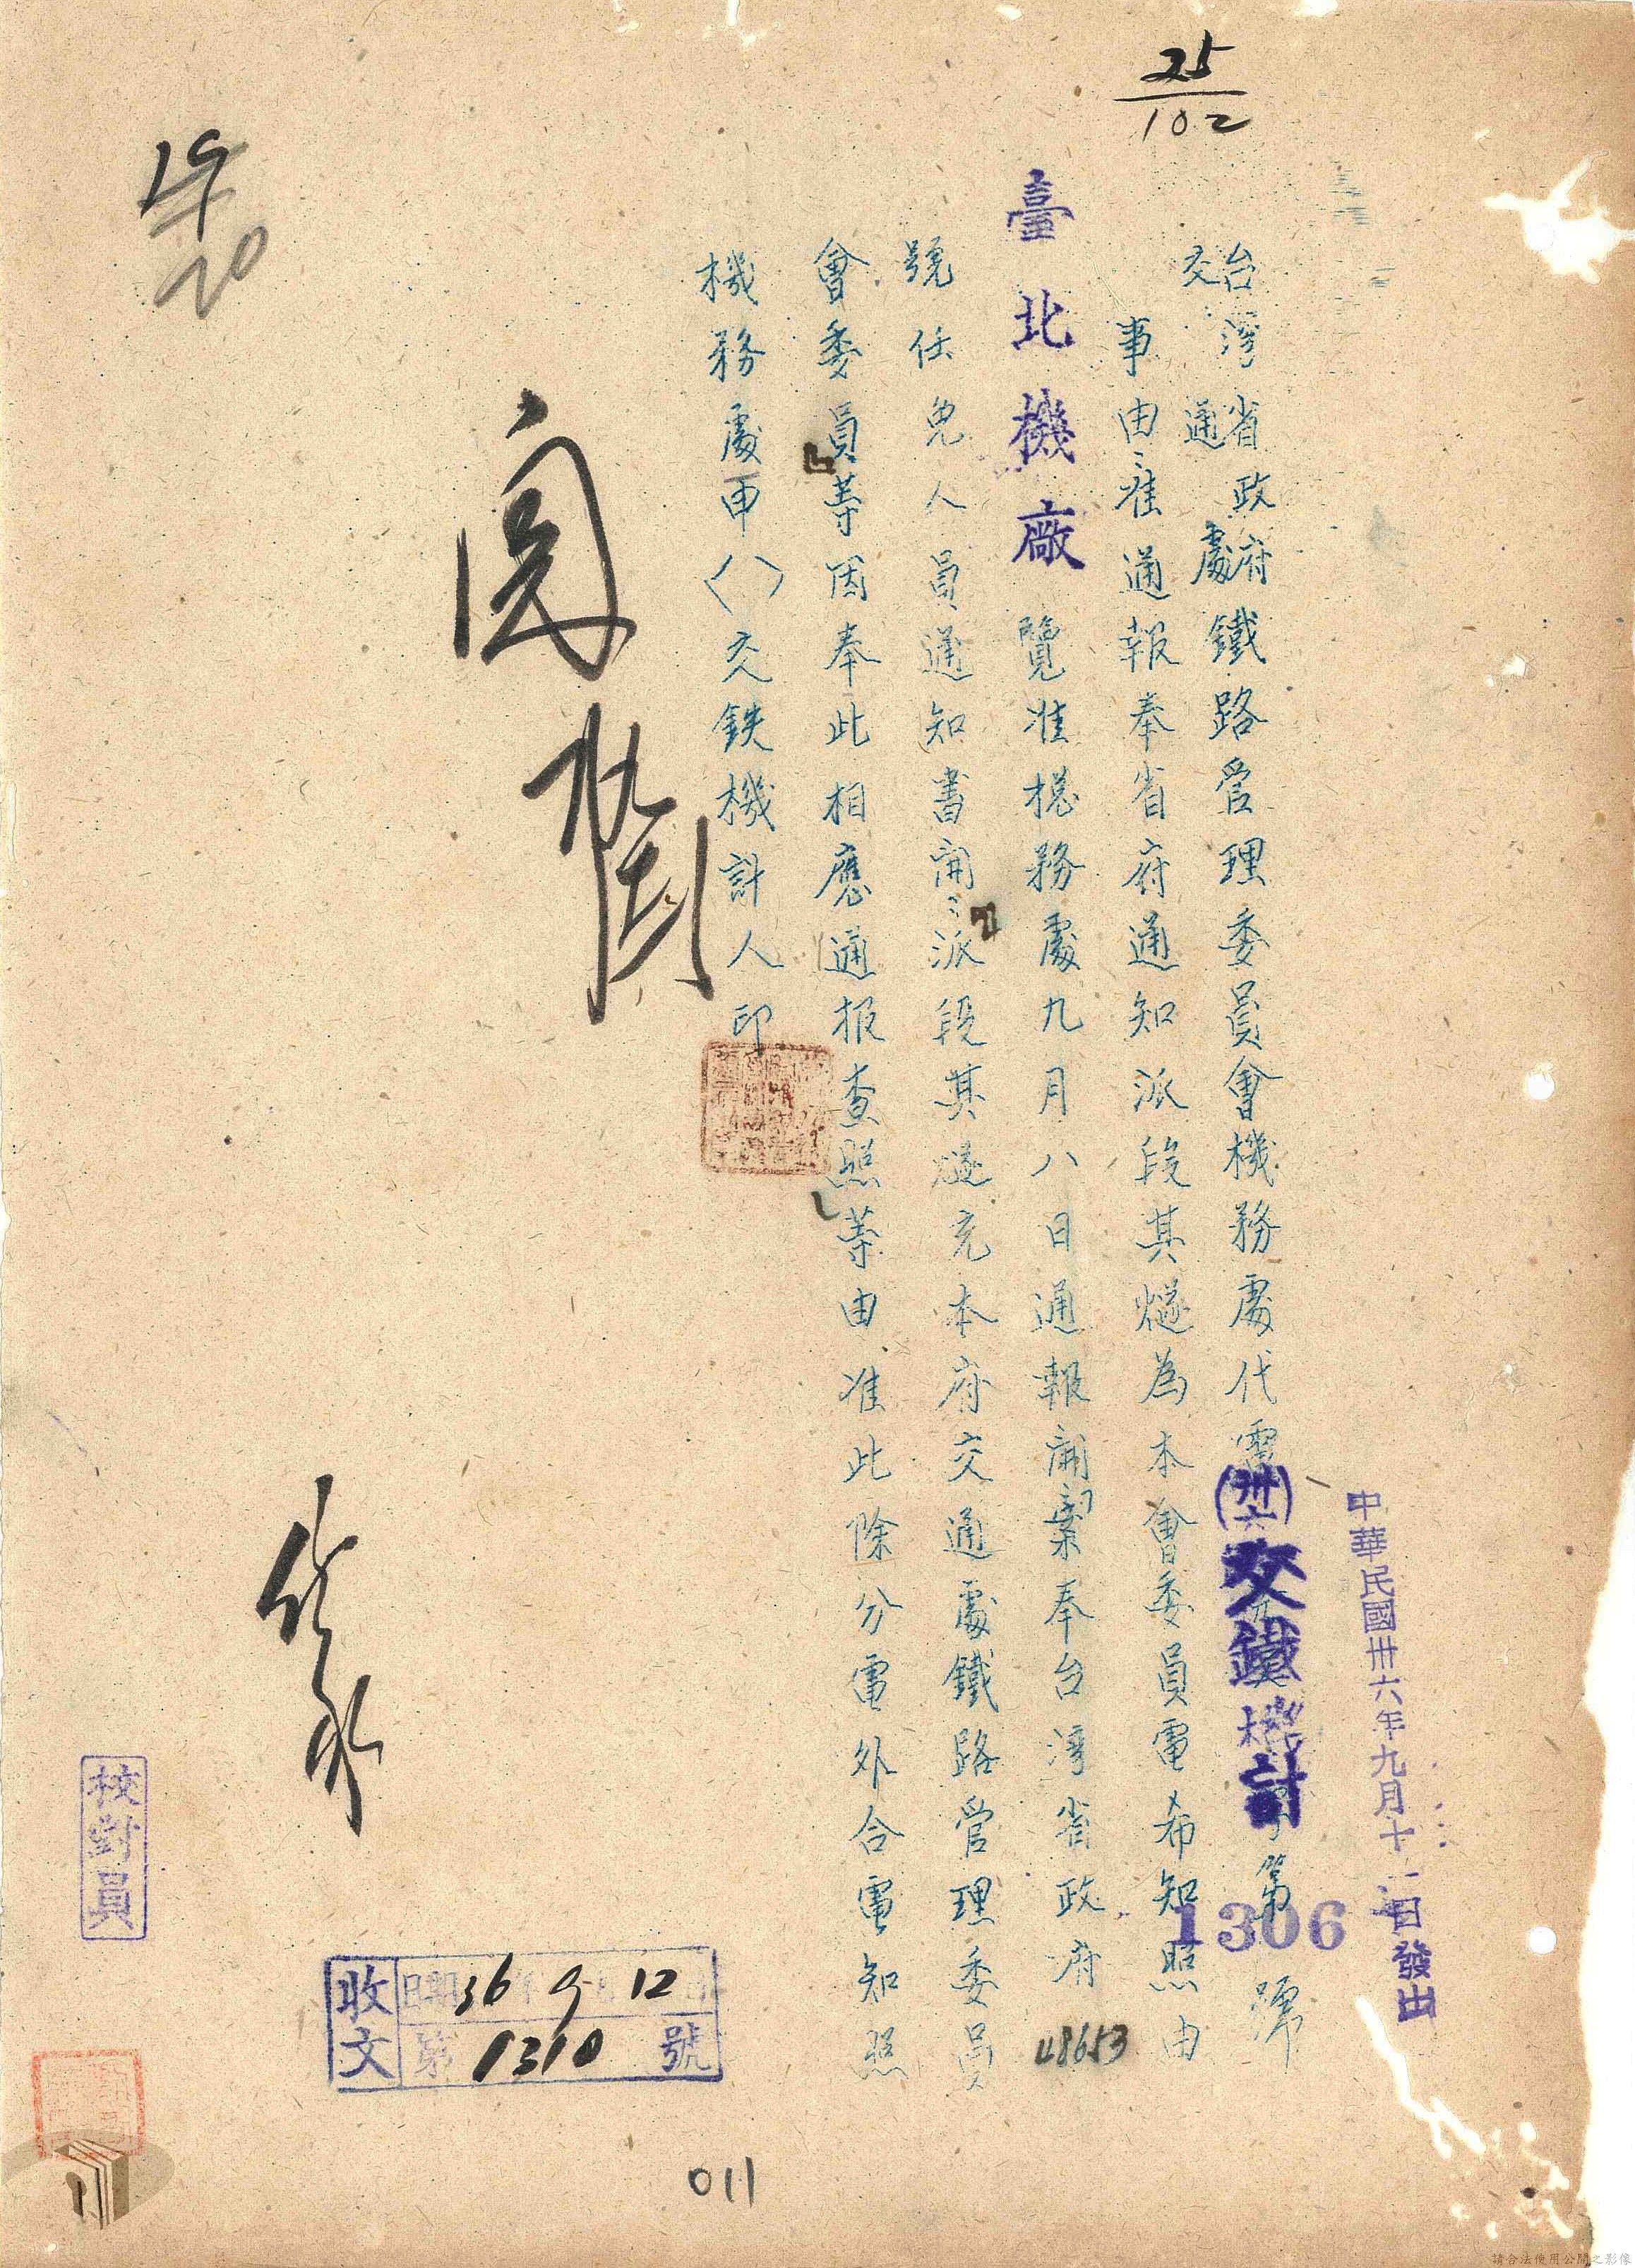 25
102
中華民國卅六年九月十一日發出
台灣省政府鐵路管理委員會機務處代電
交通處
(卅六)交鐵機計
第1306號
事由：准通報奉省府通知派段其燧為本會委員電希知照由
臺北機廠
覽准機務處九月八日通報開「案奉台灣省政府48653
號任免人員通知書開：派段其燧充本府交通處鐵路管理委員
會委員等因奉此相應通报查照等由准此除分電外合電知照
機務處申()交鉄機計人印
閱
校對員
收文
日期36 9 12
第1310號
011
請合法使用公開之影像